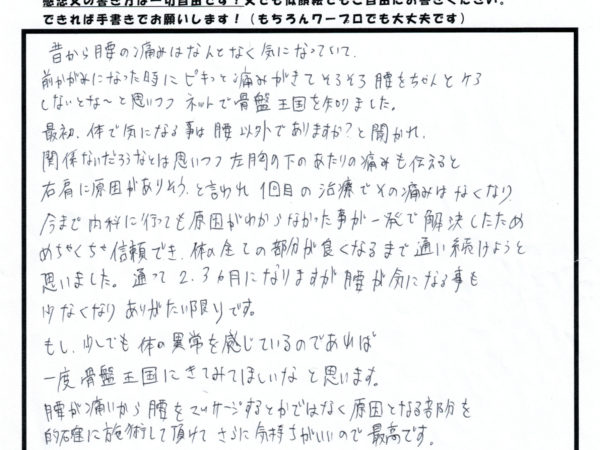 感想文の書き方は一切自由です!文でも似顔絵でもご自由にお書きください。
できれば手書きでお願いします!(もちろんワープロでも大丈夫です)
昔から腰の痛みはなんとなく気になっていて、
前かがみになった時にピキッと痛みがきてそろそろ腰をちゃんとケア
しないとな〜と思いつつネットで骨盤王国を知りました。
最初、体で気になる事は腰以外でありますか?と聞かれ、
関係ないだろうなとは思いつつ左胸の下のあたりの痛みも伝えると
右肩に原因がありそう、と言われ1回目の治療でその痛みはなくなり
今まで内科に行っても原因がわからなかった事が一発で解決したため
めちゃくちゃ信頼でき、体の全ての部分が良くなるまで通い続けようと
思いました。通って2、3ヵ月になりますが腰が気になる事も
少なくなりありがたい限りです。
もし、少しでも体の異常を感じているのであれば
一度骨盤王国にきてみてほしいなと思います。
腰が痛いから腰をマッサージするとかではなく原因となる部分を
的確に施術して頂けてさらに気持ちがいいので最高です。